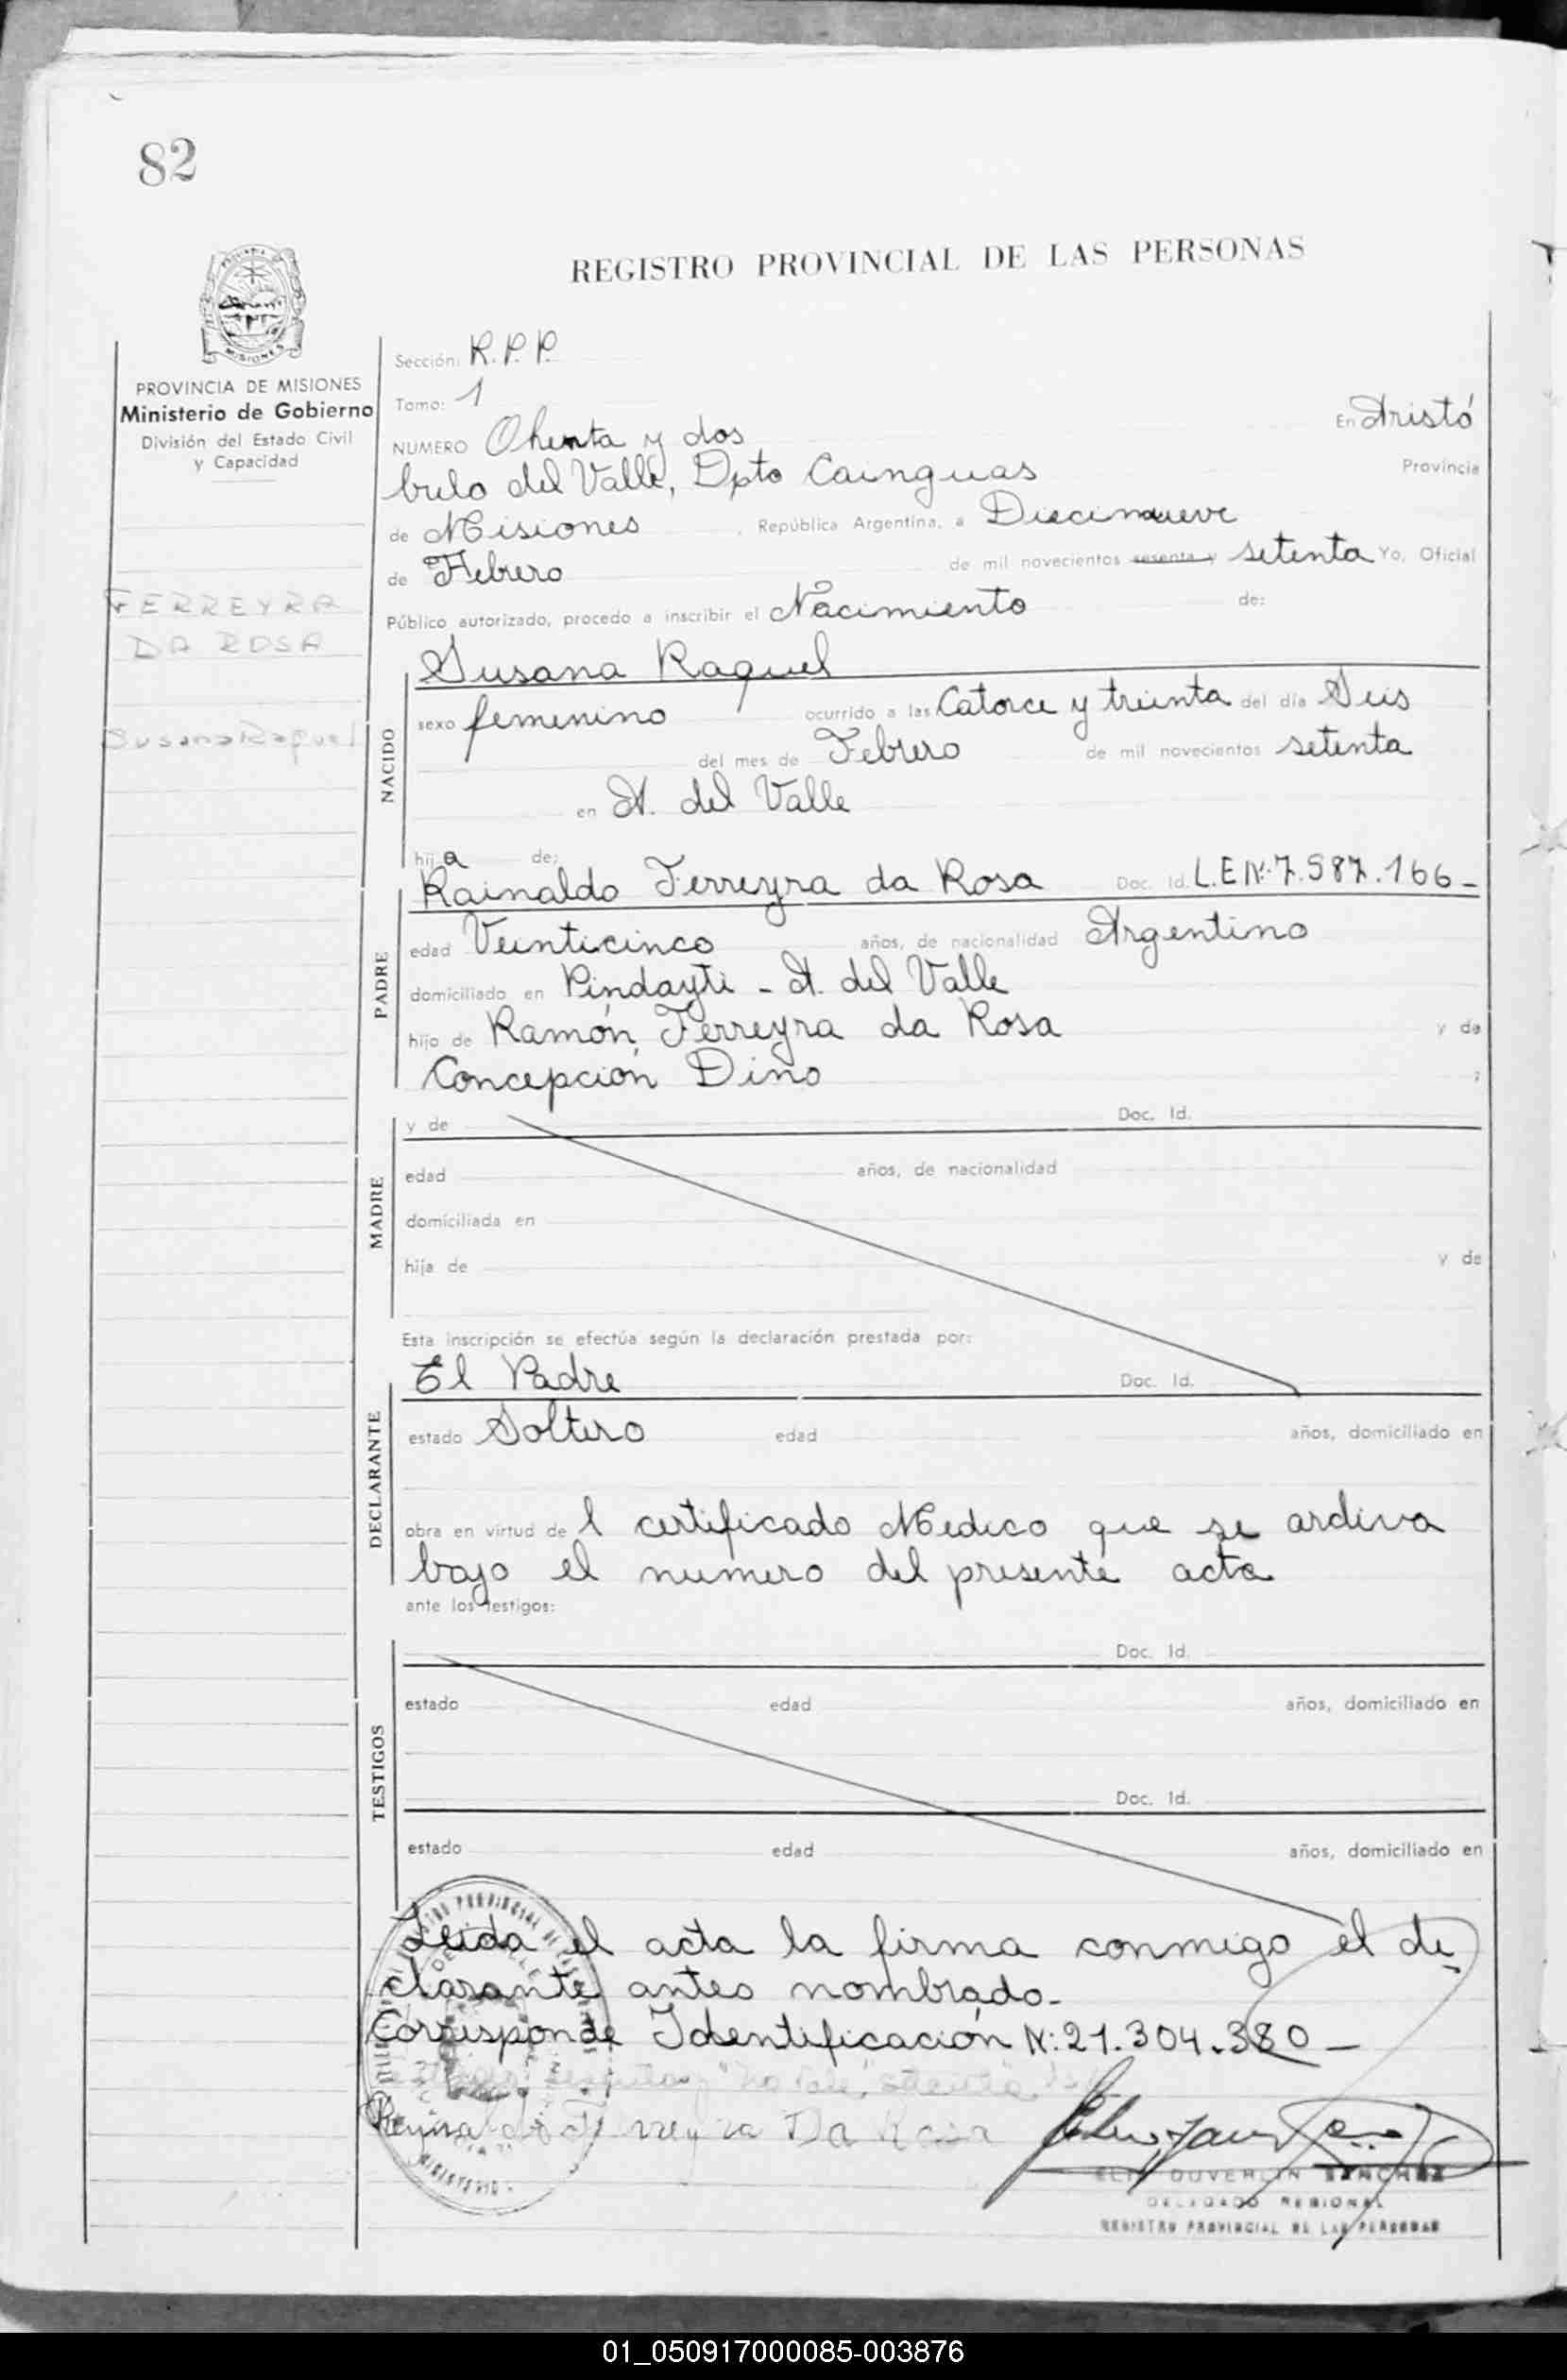 82
REGISTRO PROVINCIAL DE LAS PERSONAS
MISIONES
PROVINCIA DE MISIONES
Ministerio de Gobierno
División del Estado Civil
y Capacidad
FERREYRA
DA ROSA
Susana Raquel
Sección: R.P.P.
Tomo: 1
NUMERO Ohenta y dos En Aristó
bulo del Valle, Dpto Cainguas Provincia
de Misiones , República Argentina, a Diecinueve
de Febrero de mil novecientos sesenta y setenta Yo, Oficial
Público autorizado, procedo a inscribir el Nacimiento de:
NACIDO
Susana Raquel
sexo femenino ocurrido a las Catorce y treinta del día Seis
del mes de Febrero de mil novecientos setenta
en A. del Valle
hija de:
PADRE
Rainaldo Ferreyra da Rosa Doc. Id. L.E.Nº 7.587.166-
edad Veinticinco años, de nacionalidad Argentino
domiciliado en Pindayti - A. del Valle
hijo de Ramón Ferreyra da Rosa y de
Concepción Dino ;
MADRE
y de Doc. Id.
edad años, de nacionalidad
domiciliada en
hija de y de
Esta inscripción se efectúa según la declaración prestada por:
DECLARANTE
El Padre Doc. Id.
estado Soltero edad años, domiciliado en
obra en virtud de l certificado Medico que se ardiva
bajo el numero del presente acta
ante los testigos:
TESTIGOS
Doc. Id.
estado edad años, domiciliado en
Doc. Id.
estado edad años, domiciliado en
Leida el acta la firma conmigo el de
clarante antes nombrado-
Corresponde Identificación N: 21.304.380-
"no vale" setenta
Reynaldo Ferreyra Da Rosa
DUVERLIN SANCHEZ
DELEGADO REGIONAL
REGISTRO PROVINCIAL DE LAS PERSONAS
01_050917000085-003876